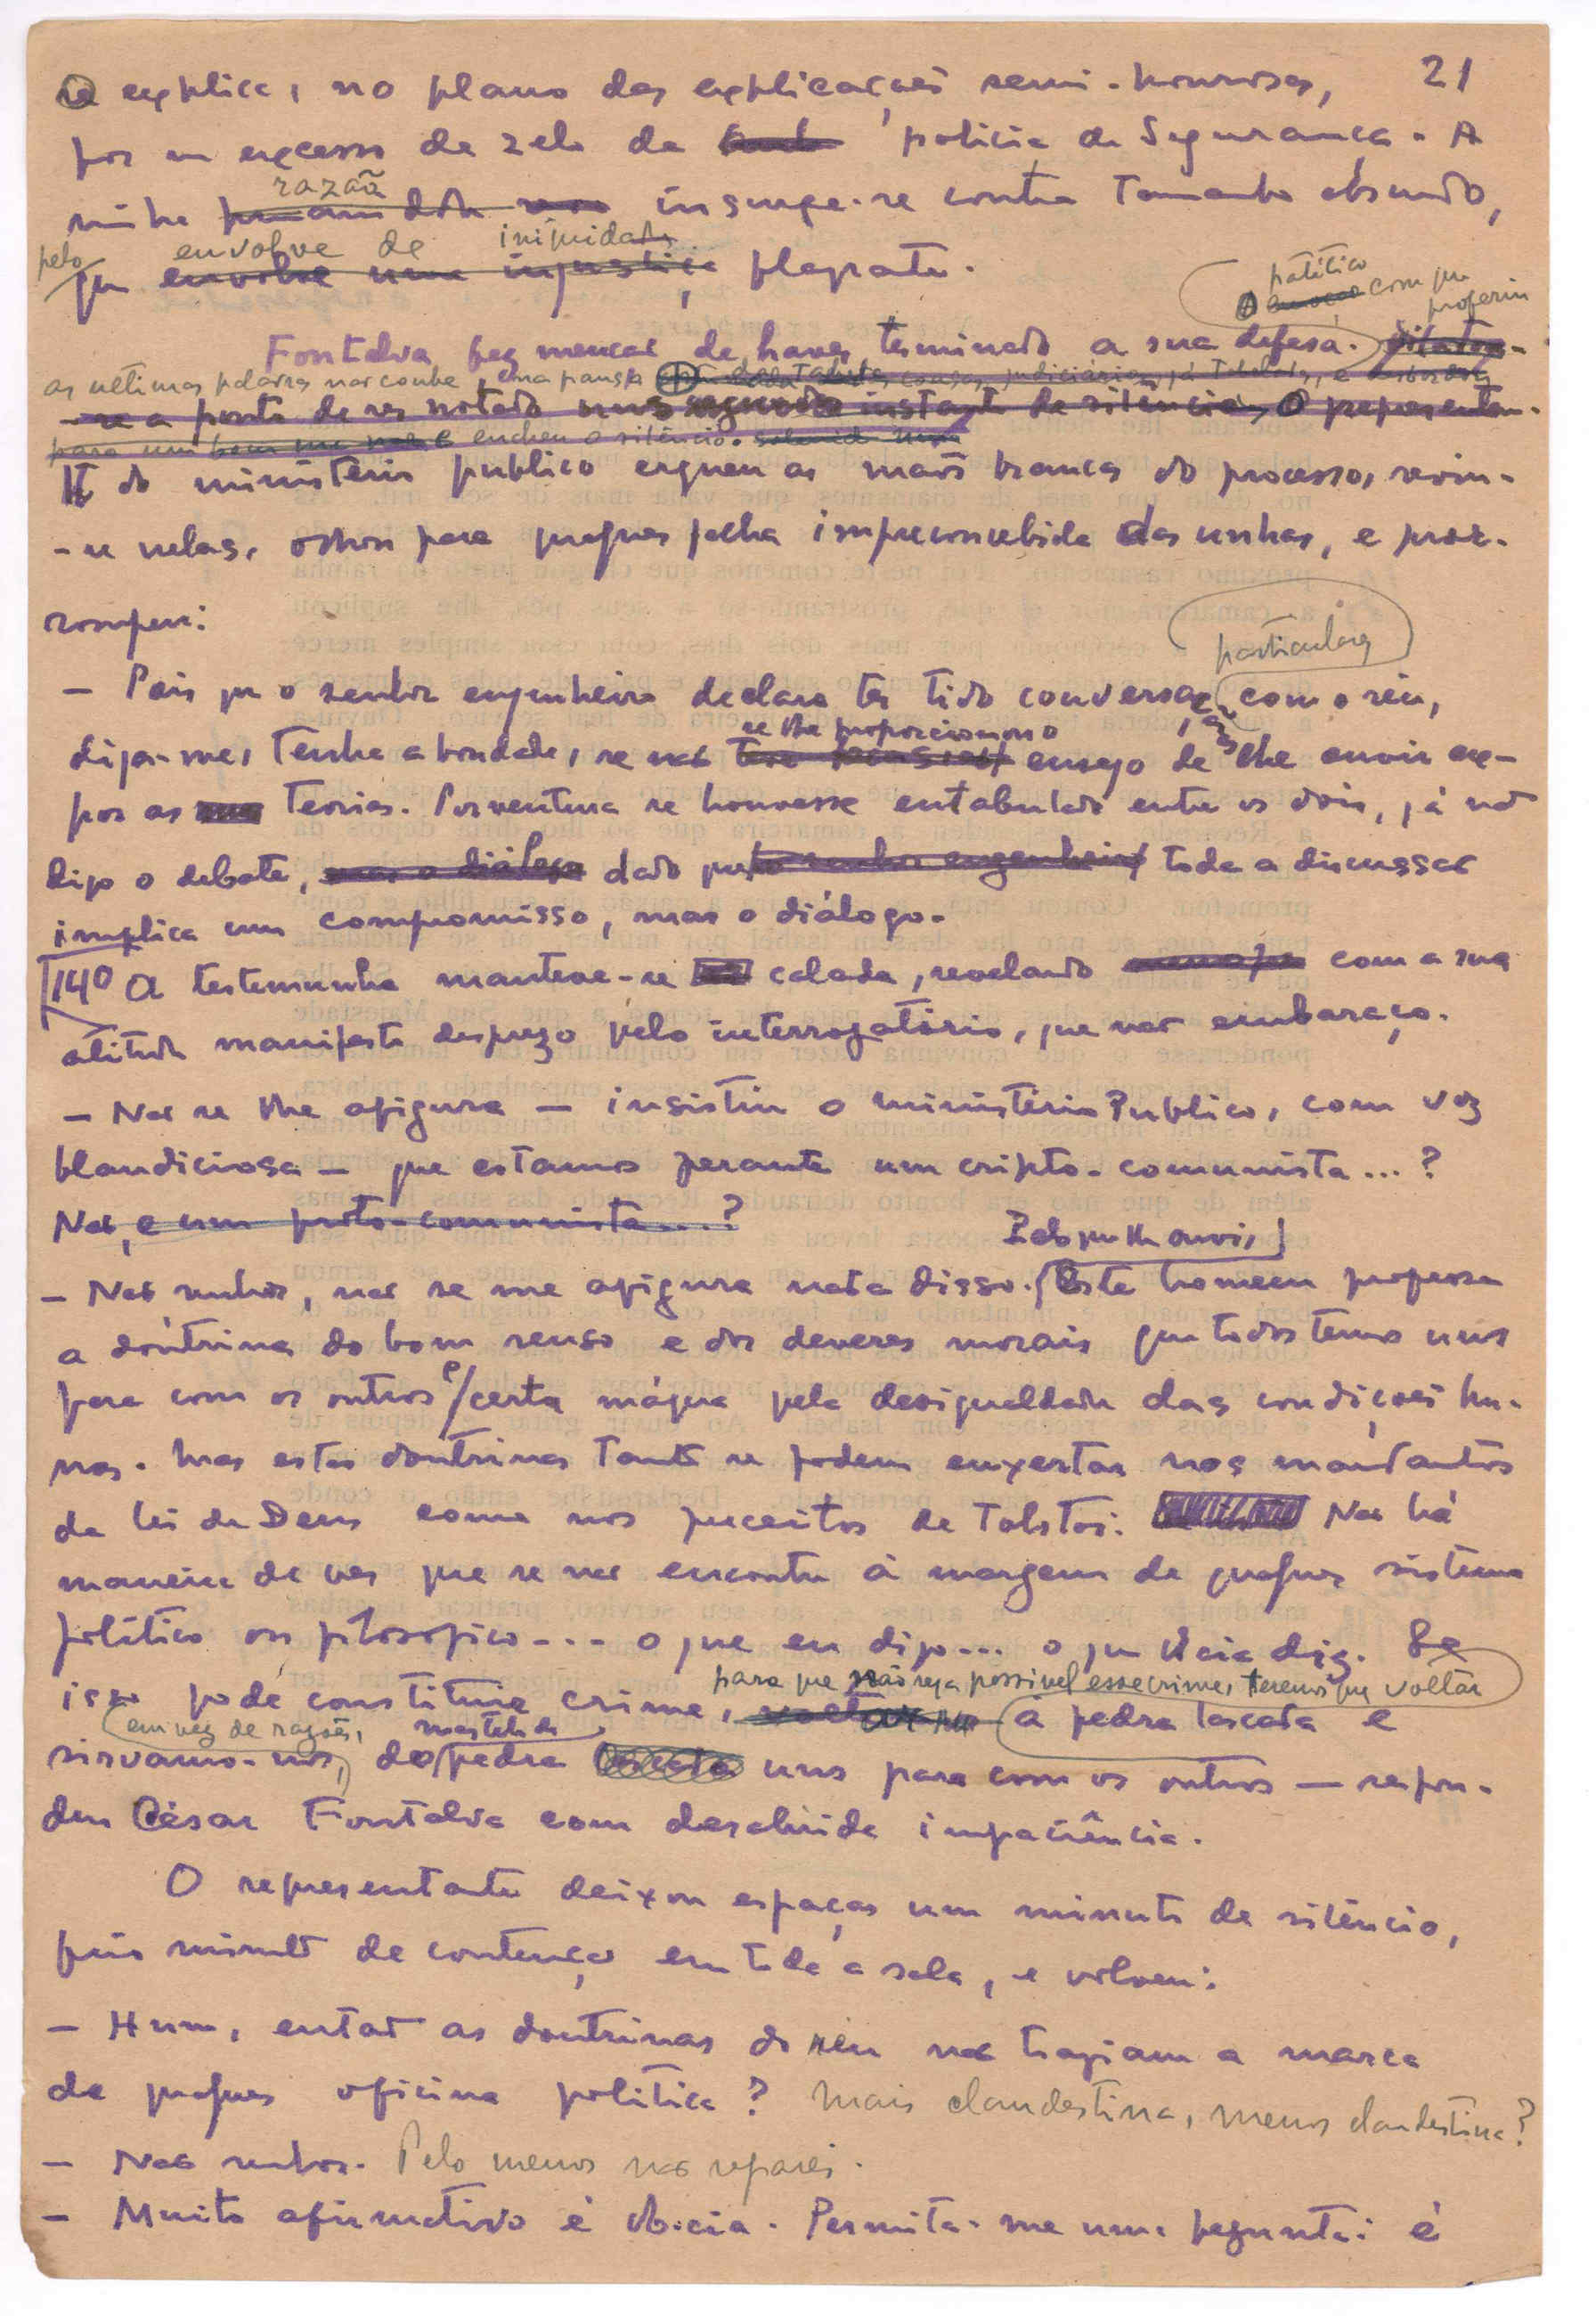 21
se explica, no plano das explicações semi-honrosas,
por um excesso de zelo da polícia de Segurança. A
razão
minha insurge-se contra tamanho absurdo,
pelo envolve de iniquidade
que envolve uma injustiça flagrante.
patético
O com que proferiu
Fontalva fez menção de haver terminado a sua defesa.
as últimas palavras não coube, uma pausa
-se a ponto de ser notado instante de silêncio, O representan-
encheu o silêncio.
te do ministério público ergueu as mãos brancas do processo, reviu-
-se nelas, olhou para qualquer falha impreconcebida das unhas, e pror-
rompeu:
particulares
— Pois que o senhor engenheiro declara ter tido conversas com o réu,
se lhe proporcionou o
diga-me, tenha a bondade, se não ensejo de lhe ouvir ex-
por as teorias. Porventura se houvesse entabulado entre os dois, já não
digo o debate, mas o diálogo dado que o senhor engenheiro toda a discussão
implica um compromisso, mas o diálogo.
140 A testemunha manteve-se calada, revelando com a sua
atitude manifesto desprezo pelo interrogatório, que não embaraço.
— Não se lhe afigura — insistiu o ministério Publico, com voz
blandiciosa — que estamos perante um cripto-comunista...?
Não, é um proto-comunista...?
Pelo que lhe ouvi,
— Não senhor, não se me afigura nada disso. Este homem professa
a doutrina do bom senso e dos deveres morais que todos temos uns
para com os outros e certa mágoa pela desigualdade das condições hu-
nas. Mas estas doutrinas tanto se podem enxertar nos mandantos
da lei de Deus como nos preceitos de Tolstoi. Não há
maneira de ver que se não encontre à margem de qualquer sistema
político ou filosófico... o que eu digo... o que V.cia diz. Se
para que não seja possível esse crime, teremos que voltar
isso pode constituir crime, à pedra lascada e
em vez de razões,
sirvamo-nos, de pedra lascada uns para com os outros — respon-
deu César Fontalva com desabrida impaciência.
O representante deixou espaçar um minuto de silêncio,
pois minuto de contenço em toda a sala, e volveu:
— Hum, então as doutrinas do réu não traziam a marca
de qualquer oficina política? Mais clandestina, menos clandestina?
— Não senhor. Pelo menos não reparei.
— Muito afirmativo é V.cia. Permita-me uma pegunta: é